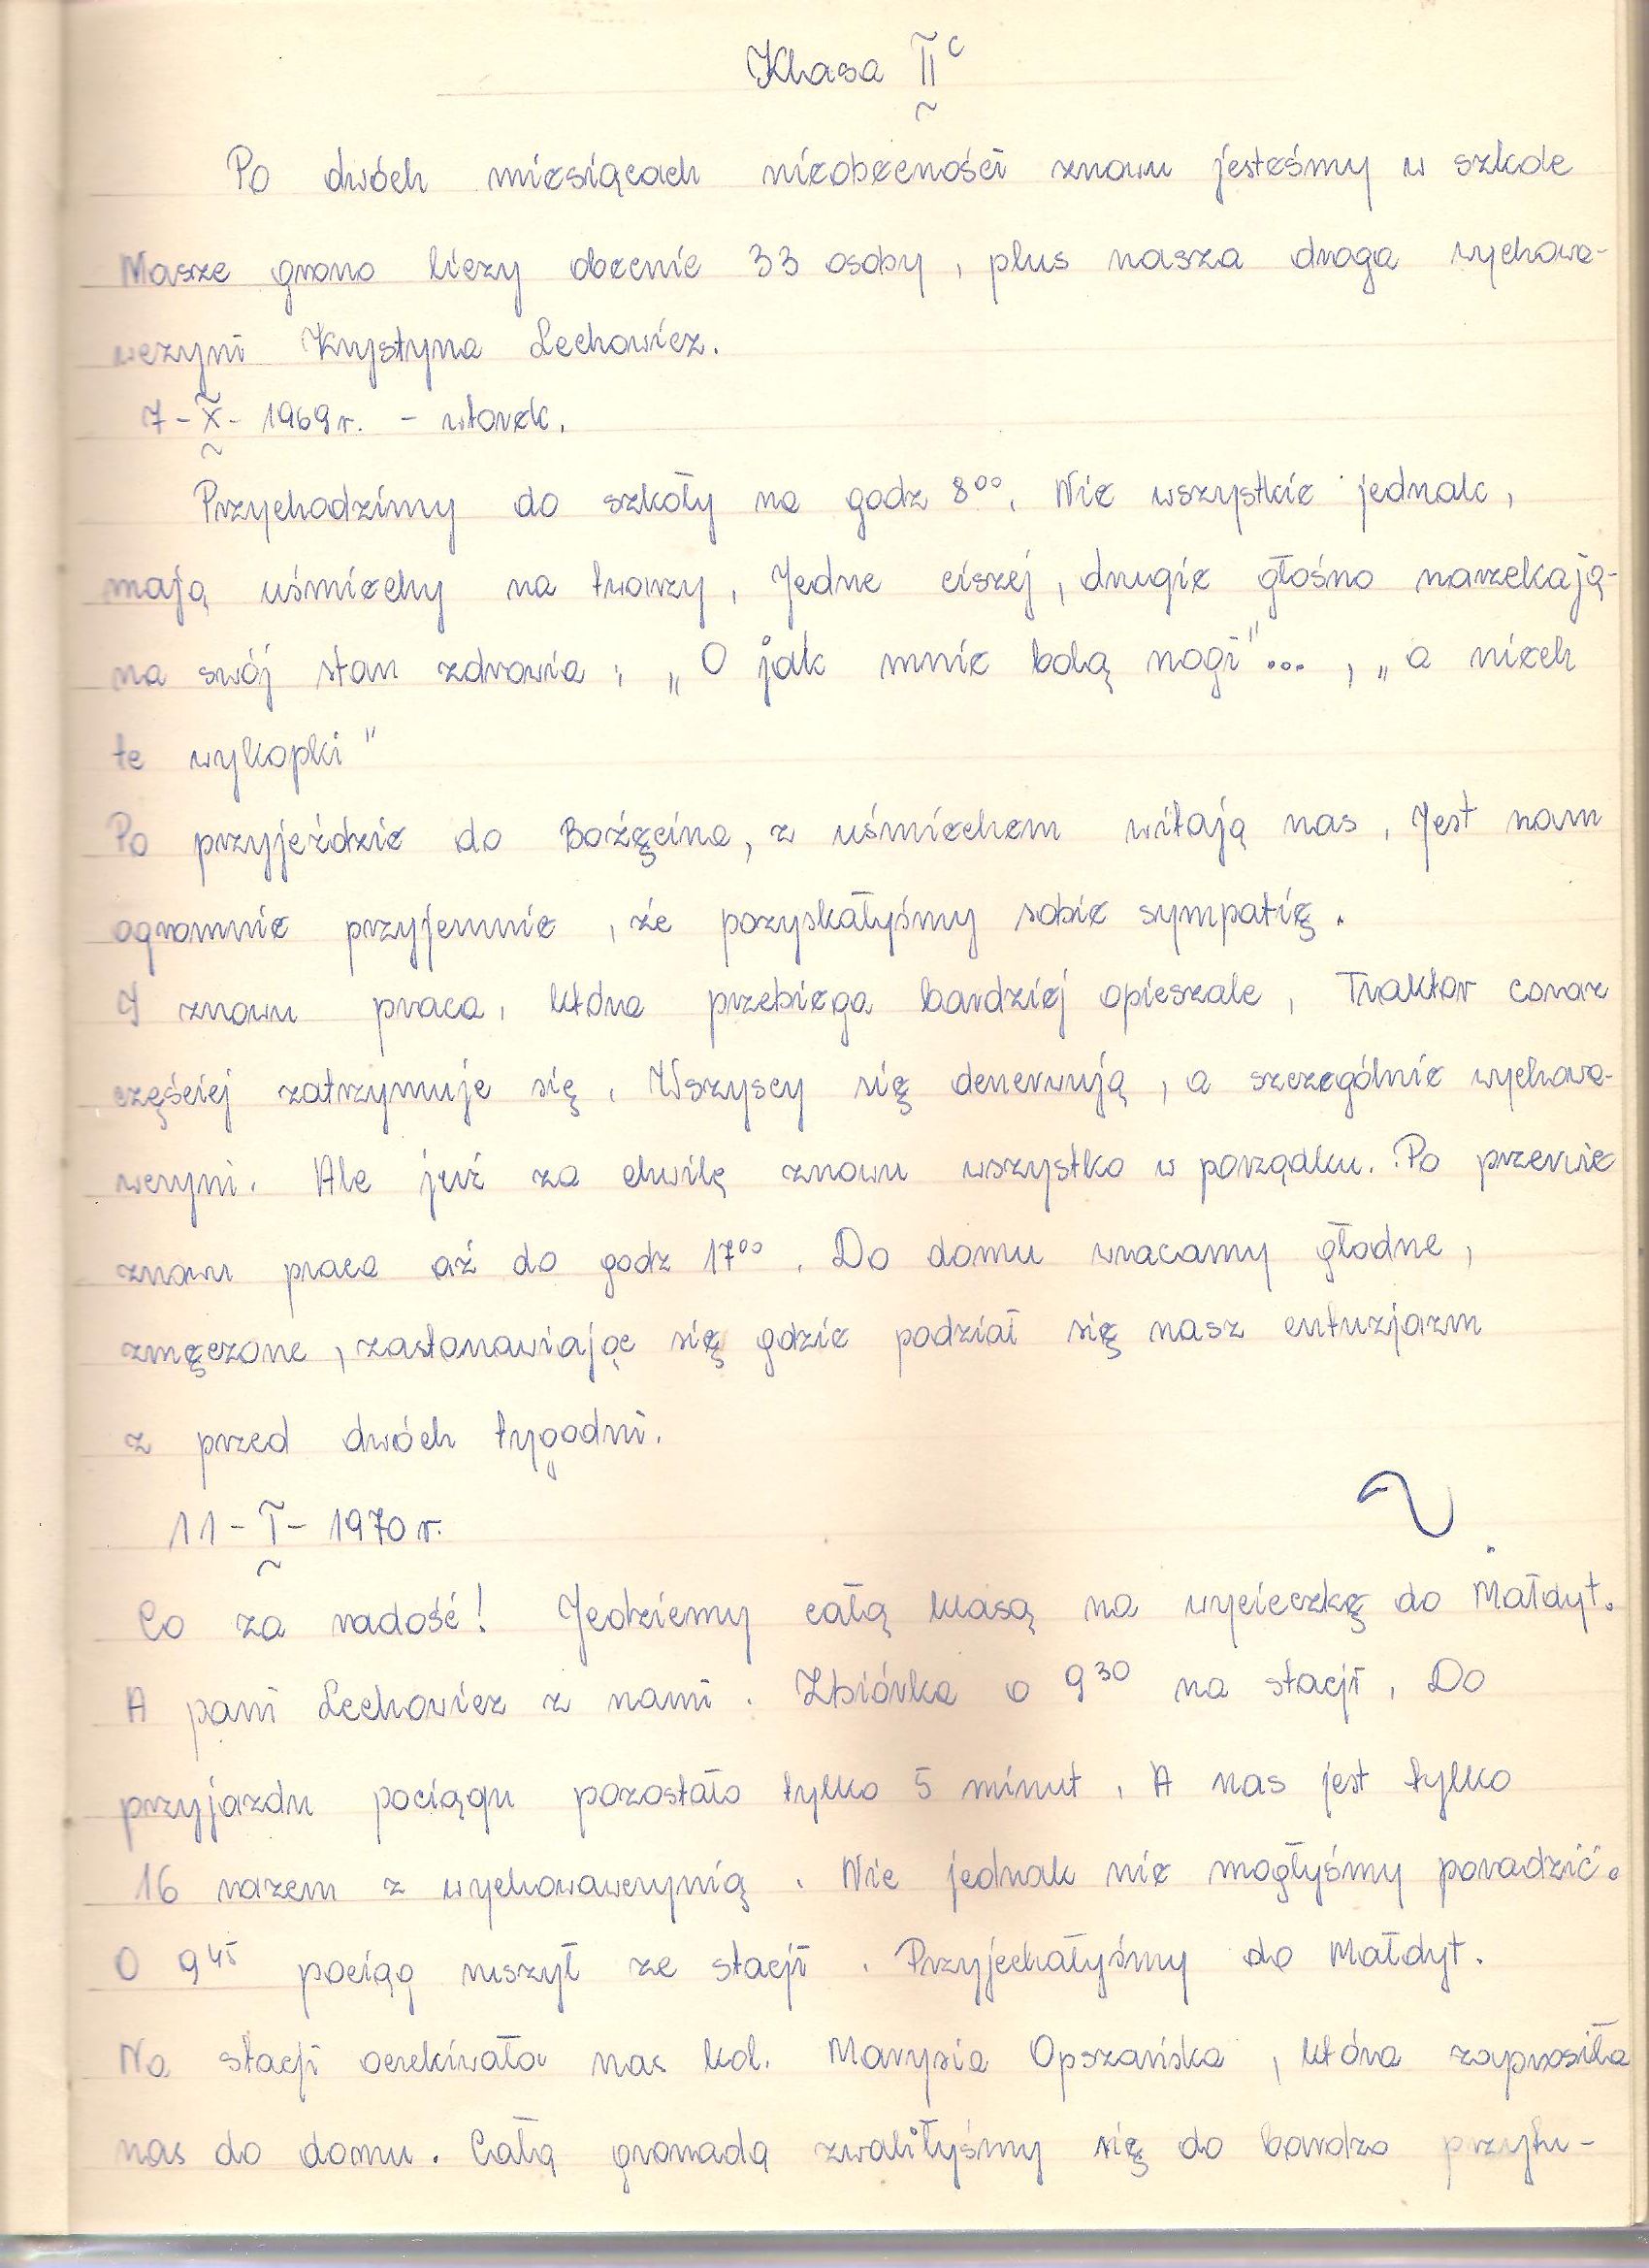 Klasa IIc
Po dwóch miesiącach nieobecności znowu jesteśmy w szkole
Nasze grono liczy obecnie 33 osoby, plus nasza droga wychowa-
wczyni Krystyna Lechowicz.
7-X-1969r. - wtorek.
Przychodzimy do szkoły na godz 8⁰⁰. Nie wszystkie jednak,
mają uśmiechy na twarzy. Jedne ciszej, drugie głośno narzekają-
na swój stan zdrowia: „O jak mnie bolą nogi"..., „a niech
te wykopki"
Po przyjeździe do Bożęcina, z uśmiechem witają nas. Jest nam
ogromnie przyjemnie, że pozyskałyśmy sobie sympatię.
I znowu praca, która przebiega bardziej opieszale. Traktor coraz
częściej zatrzymuje się. Wszyscy się denerwują, a szczególnie wychowa-
wczyni. Ale już za chwilę znowu wszystko w porządku. Po przerwie
znowu praca aż do godz 17⁰⁰. Do domu wracamy głodne,
zmęczone, zastanawiając się gdzie podział się nasz entuzjazm
z przed dwóch tygodni.
11-I-1970r.
Co za radość! Jedziemy całą klasą na wycieczkę do Małdyt.
A pani Lechowicz z nami. Zbiórka o 9³⁰ na stacji. Do
przyjazdu pociągu pozostało tylko 5 minut. A nas jest tylko
16 razem z wychowawczynią. Nic jednak nie mogłyśmy poradzić.
O 9⁴⁵ pociąg ruszył ze stacji. Przyjechałyśmy do Małdyt.
Na stacji oczekiwała nas kol. Marysia Opszańska, która zaprosiła
nas do domu. Całą gromadą zwaliłyśmy się do bardzo przytu-